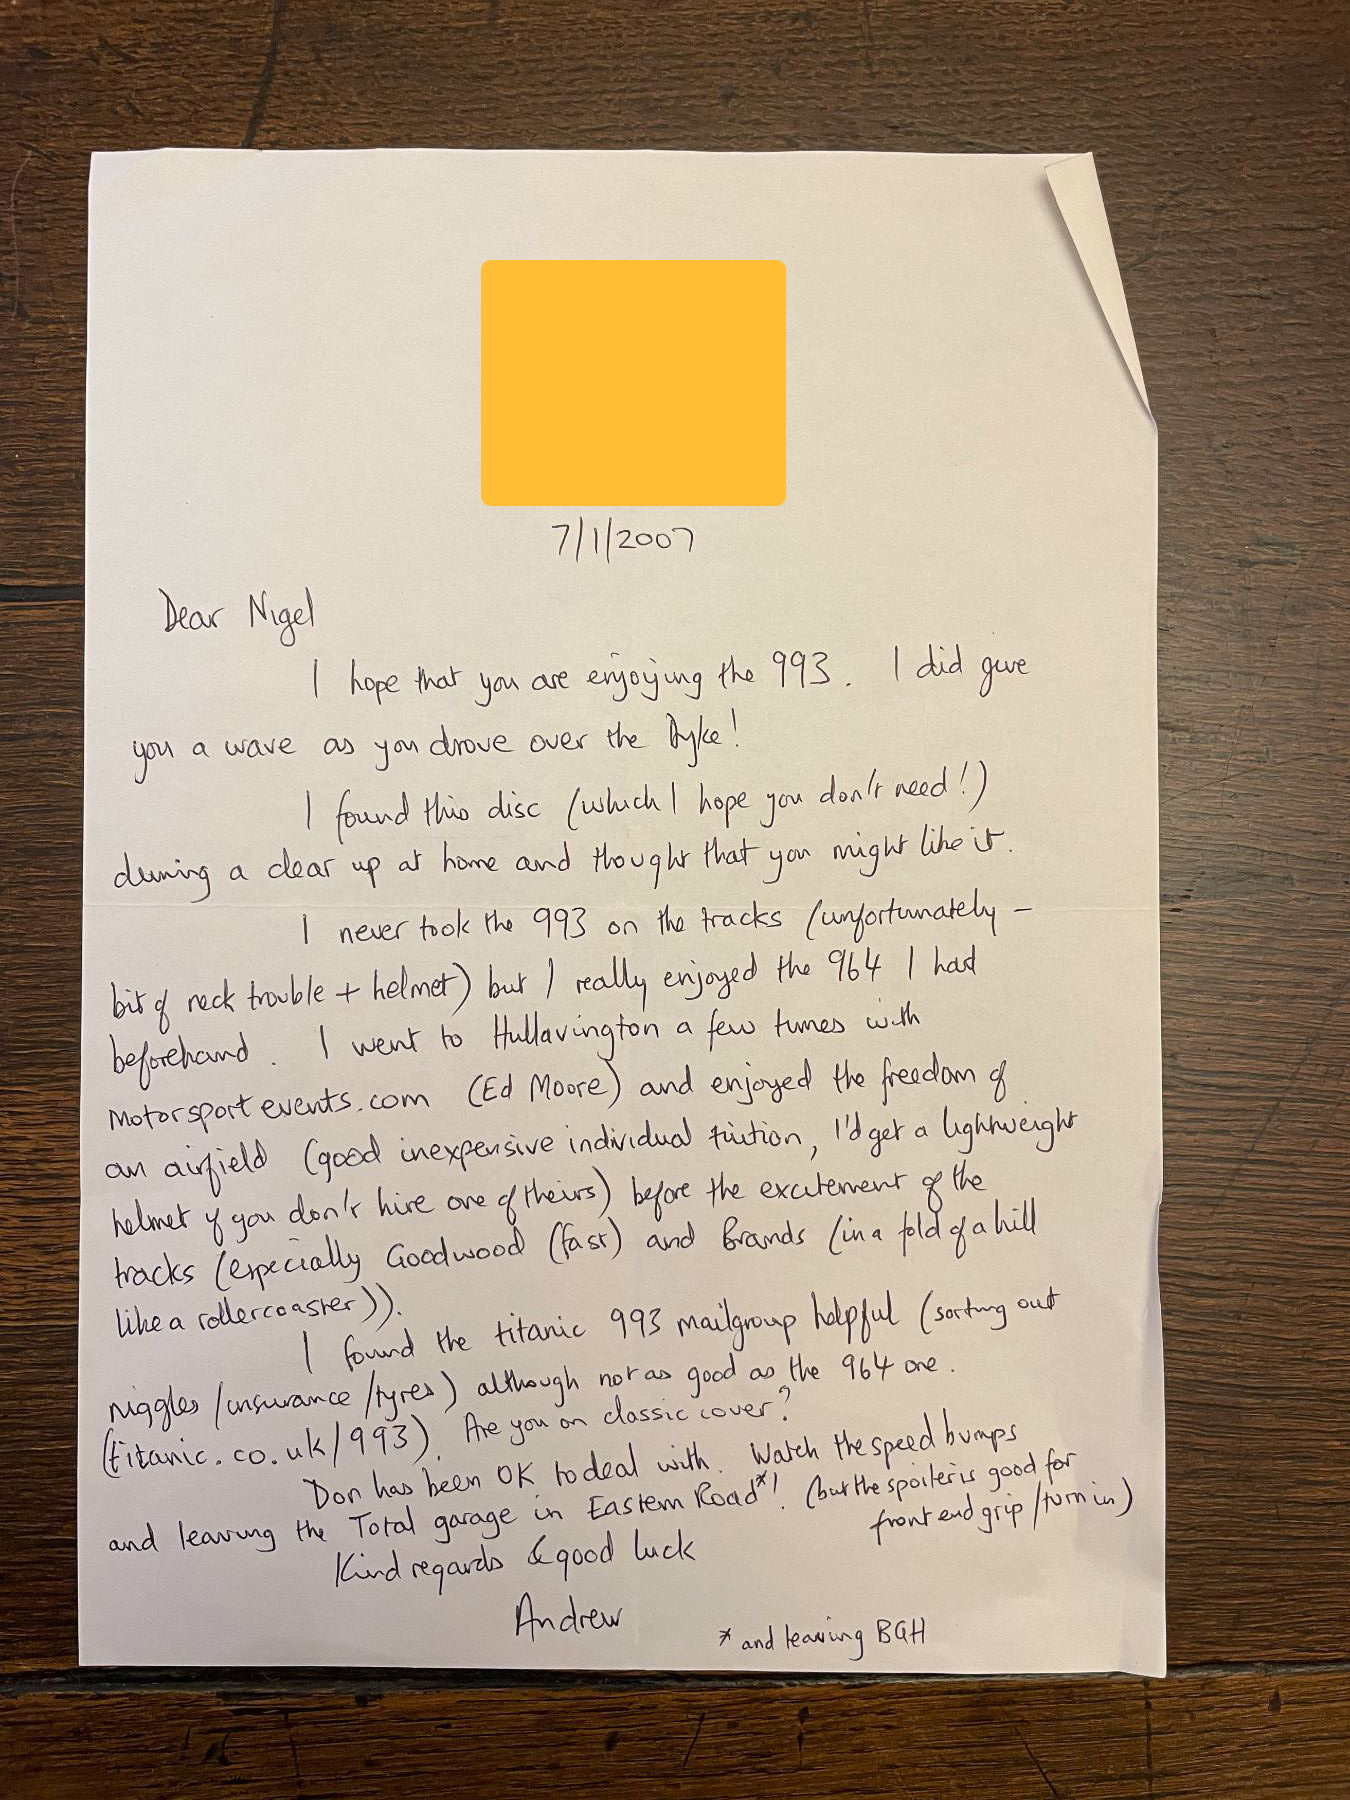 7/1/2007
Dear Nigel
I hope that you are enjoying the 993. I did give
you a wave as you drove over the Dyke!
I found this disc (which I hope you don't need!)
during a clear up at home and thought that you might like it.
I never took the 993 on the tracks (unfortunately –
bit of neck trouble + helmet) but I really enjoyed the 964 I had
beforehand. I went to Hullavington a few times with
Motorsport events.com (Ed Moore) and enjoyed the freedom of
an airfield (good inexpensive individual tuition, I'd get a lightweight
helmet if you don't hire one of theirs) before the excitement of the
tracks (especially Goodwood (fast) and Brands (in a fold of a hill
like a rollercoaster)).
I found the titanic 993 mailgroup helpful (sorting out
niggles/insurance/tyres) although not as good as the 964 one.
(titanic.co.uk/993). Are you on classic cover?
Don has been OK to deal with. Watch the speed bumps
and leaving the Total garage in Eastern Road*! (but the spoiler is good for
front end grip/turn in)
Kind regards & good luck
Andrew
* and leaving BGH